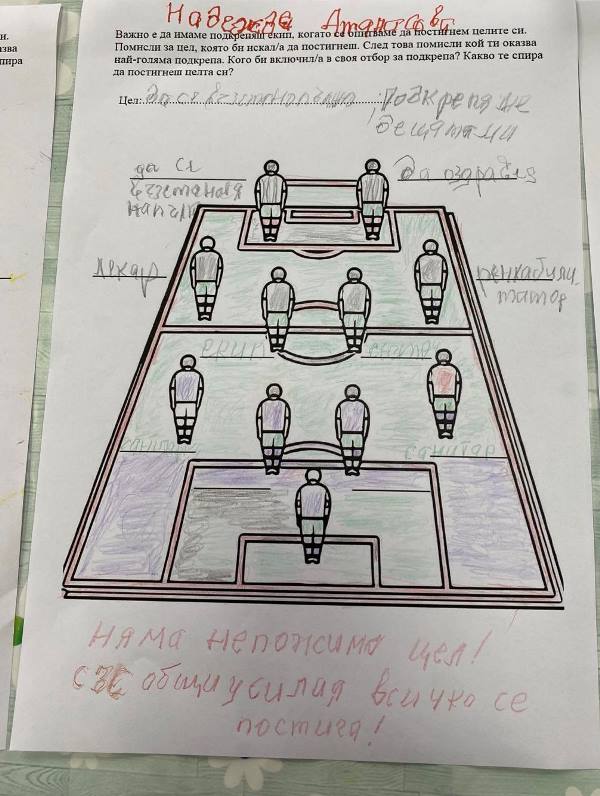 Надежда Атанасова
Важно е да имаме подкрепящ екип, когато се опитваме да постигнем целите си.
Помисли за цел, която би искал/а да постигнеш. След това помисли кой ти оказва
най-голяма подкрепа. Кого би включил/а в своя отбор за подкрепа? Какво те спира
да постигнеш целта си?
Цел: Да се възстановя Подкрепа не
да се
възстановя
напълно
да оздравея
лекар
екип
санитар
санитар
няма непожима цел!
със общи усилия всичко се
постига!